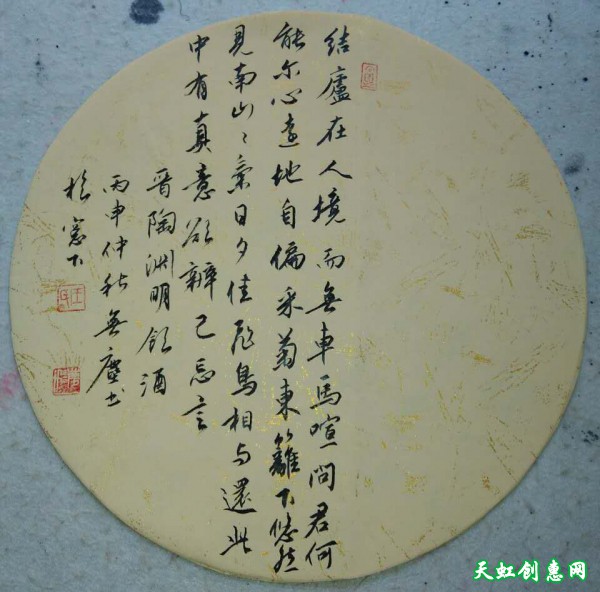 结廬在人境而無車馬喧问君何
能尔心遠地自偏采菊東籬下悠然
見南山山氣日夕佳飛鳥相与還此
中有真意欲辨已忘言
晋陶渊明饮酒
丙申仲秋無塵书
於窓下
天虹创惠网